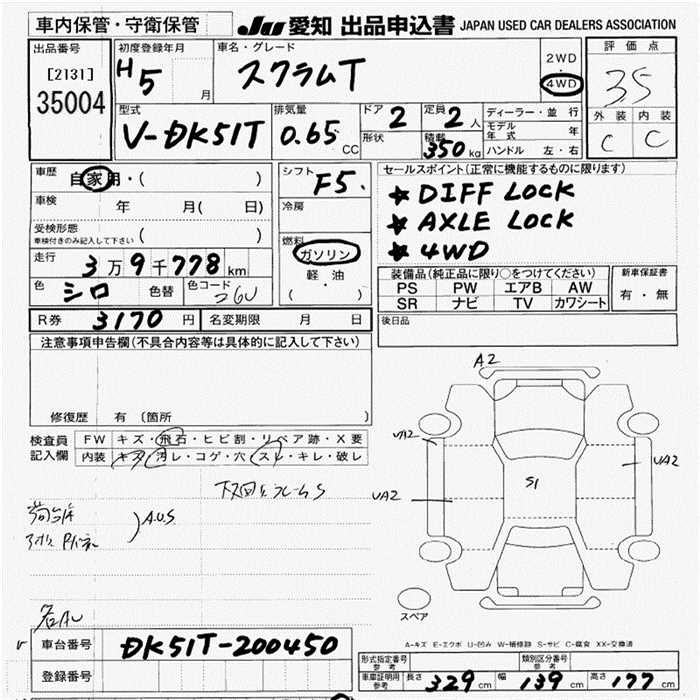 車内保管・守衛保管
JU 愛知 出品申込書 JAPAN USED CAR DEALERS ASSOCIATION
出品番号
[2131]
35004
初度登録年月
H5 月
車名・グレード
スクラムT
2WD
・
4WD
評価点
35
外装 内装
C C
型式
V-DK51T
排気量
0.65 CC
ドア 2
形状
定員 2 人
積載 350 kg
ディーラー・並行
モデル年式 年
ハンドル 左・右
車歴
自家用・( )
車検
年 月( 日)
受検形態
車検付きのみ記入して下さい ( )
走行
3万9千778km
色
シロ 色替
色コード
26U
シフト
F5.
冷房
燃料
ガソリン
軽油
( ・ )
セールスポイント(正常に機能するものに限ります)
★ DIFF LOCK
★ AXLE LOCK
★ 4WD
装備品(純正品に限り○をつけてください)
PS PW エアB AW
SR ナビ TV カワシート
新車保証書
有・無
R券 3170 円
名変期限 月 日
後日品
注意事項申告欄(不具合内容等は具体的に記入して下さい)
修復歴 有 〔箇所 〕
検査員
記入欄
FW キズ・飛石・ヒビ割・リペア跡・X要
内装 キズ・汚レ・コゲ・穴・スレ・キレ・破レ
下回りフレームS
A.U.S
各AU
A2
UA2
UA2
UA2
S1
スペア
A-キズ E-エクボ U-凹み W-補修跡 S-サビ C-腐食 XX-交換済
V 車台番号
DK51T-200450
登録番号
形式指定番号
参考
類別区分番号
参考
車庫証明用
参考
長さ 329 cm 幅 139 cm 高さ 177 cm